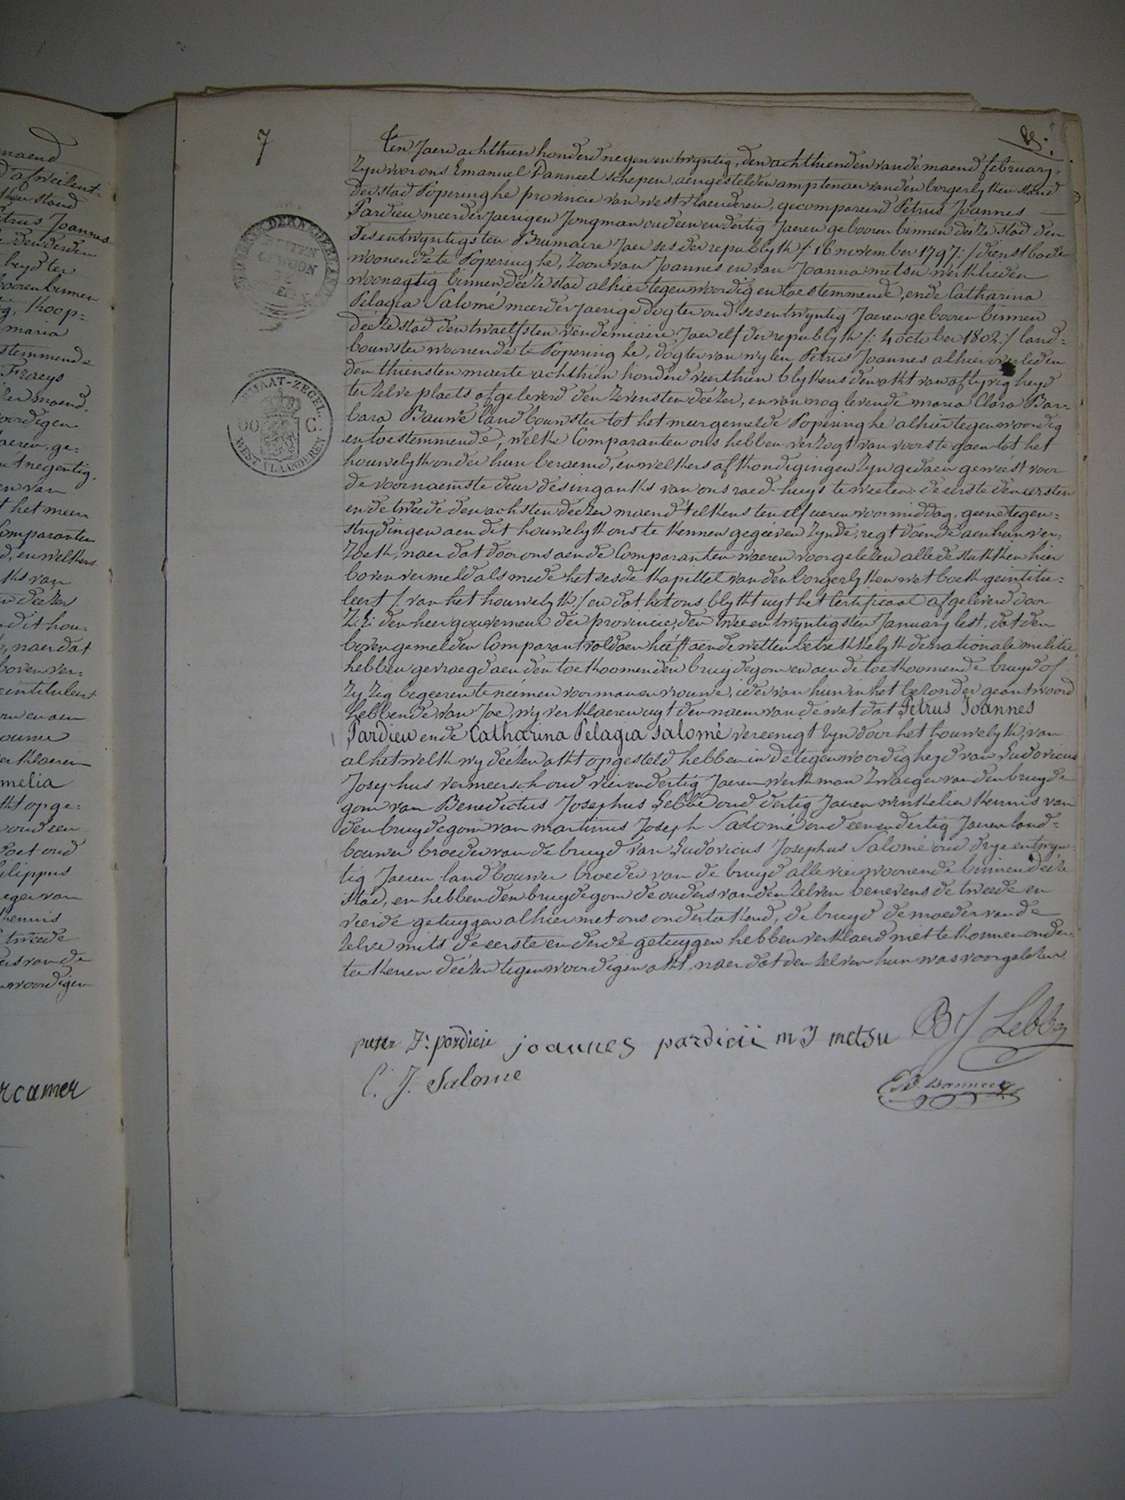 7
Ten Jaere achthien honderd negen en twyntig, den achthienden van de maend february,
Zyn voor ons Emanuel schepen, aengestelden amptenaer van den borgerlyken stand
der stad Poperinghe provincie van westvlaenderen, gecompareerd Petrus Joannes
Pardieu meerderjaerigen Jongman oud een en dertig Jaeren gebooren binnen deéze stad den
sesentwyntigsten Brumaire Jaer ses der republyk /: 16 november 1797: / dienstbode
woonende te Poperinghe, zoon van Joannes en van Joanna metsu werklieden
woonagtig binnen deéze stad alhier tegenwoordig en toestemmende, ende Catharina
Pelagia Salomé meerderjaerige dogter oud sesentwyntig Jaeren gebooren binnen
deéze stad den twaelfsten vendemiaire Jaer elf der republyk /: 4 october 1802 :/ land-
bouwster woonende te Poperinghe, dogter van wylen Petrus Joannes alhier overleden
den thiensten maerte achthien honderd veerthien blykens den akt van aflyvigheyd
ter zelve plaets afgeleverd den zevensten deézer, en van nog levende maria Clara Bar-
bara Bauwe landbouwster tot het meergemelde Poperinghe alhier tegenwoordig
en toestemmende, welke Comparanten ons hebben verzogt van voorts te gaen tot het
houwelyk onder hun beraemd, en welkers afkondigingen zyn gedaen geweést voor
de voornaemste deur des inganks van ons raedhuys te weeten de eerste den eersten
en de tweede den achsten deézer maend telkens ten elf ueren voormiddag, geene tegen-
strydingen aen dit houwelyk ons te kennen gegeéven zynde, regt doende aen hun ver-
zoek, naer dat door ons aen de Comparanten waeren voorgeleézen alle de stukken hier
boven vermeld als mede het sesde kapittel van den borgerlyken wetboek geintitu-
leert /: van het houwelyk :/ en dat het ons blykt uyt het Certificaet afgeleverd door
Z:E: den heer gouverneur der provincie, den twee en twyntigsten January lest, dat den
boven gemelden Comparant voldaen heéft aen de wetten betrekkelyk de nationale militie
hebben gevraegd aen den toekoomenden bruydegom en aen de toekoomende bruyd of
zy zeg begeeren te neemen voor man en vrouwe, ieder van hun in het bezonder geantwoord
hebbende van Joe, wy verklaeren uyt den naem van de wet dat Petrus Joannes
Pardieu ende Catharina Pelagia Salomé vereenigt zyn door het houwelyk, van
al het welk wy deézen akt opgesteld hebben in de tegenwoordigheyd van Ludovicus
Josephus vermeersch oud vier en dertig Jaeren werkman zwaeger van den bruyde
gom van Benedictus Josephus Lebbe oud dertig Jaeren winkelier kennis van
den bruydegom van martinus Joseph Salomé oud een en dertig Jaeren land-
bouwer broeder van de bruyd van Ludovicus Josephus Salomé oud drye en twyn
tig Jaeren landbouwer broeder van de bruyd alle vier woonende binnen deéze
stad, en hebben den bruydegom de ouders van den zelven benevens de tweede en
vierde getuygen alhier met ons onderteekend, de bruyd de moeder van de
zelve mits de eerste en derde getuygen hebben verklaerd niet te konnen onder-
teekenen deézen tegenwoordigen akt, naer dat den zelven hun was voorgeleézen
peter J: pardieu joannes pardieü m J metsu B J Lebbe
L. J. Salome
STAAT-ZEGEL.
WEST VLAANDEREN
rcamer